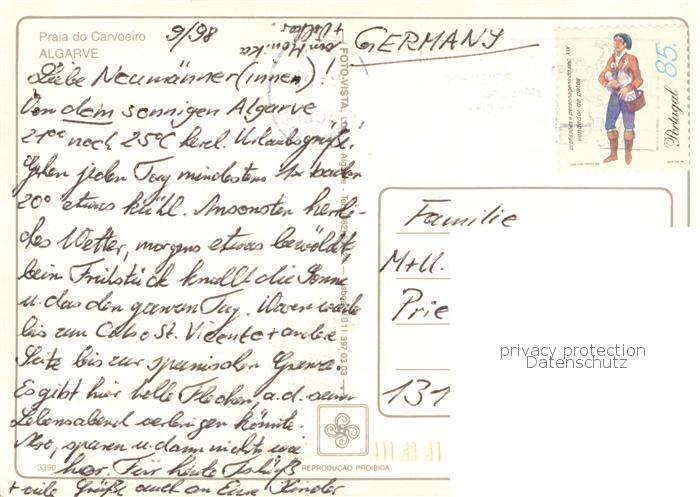 Praia do Carvoeiro
ALGARVE
9/98
von Monika
+ Volker
GERMANY
Liebe Neumänner(innen)!
Von dem sonnigen Algarve
21°° noch 25°C herzl. Urlaubsgrüße.
Gehen jeden Tag mindestens 1x baden
20° etwas kühl. Ansonsten herrli-
ches Wetter, morgens etwas bewölkt,
beim Frühstück knallt die Sonne
u. das den ganzen Tag. Waren
bis zum Cabo St. Vicente + andere
Seite bis zur spanischen Grenze.
Es gibt hier tolle Flecken, a.d. seinen
Lebensabend verbringen könnte.
Also, sparen u. dann nichts wie
her. Für heute Tschüß
+ viele Grüße auch an Eure Kinder
FOTO-VISTA,
397 03 03
3390
REPRODUÇÃO PROIBIDA
profissões e personagens do séc. XIX
vendedor de patos
Portugal 85.
Familie
M+U.
Prie
131
privacy protection
Datenschutz